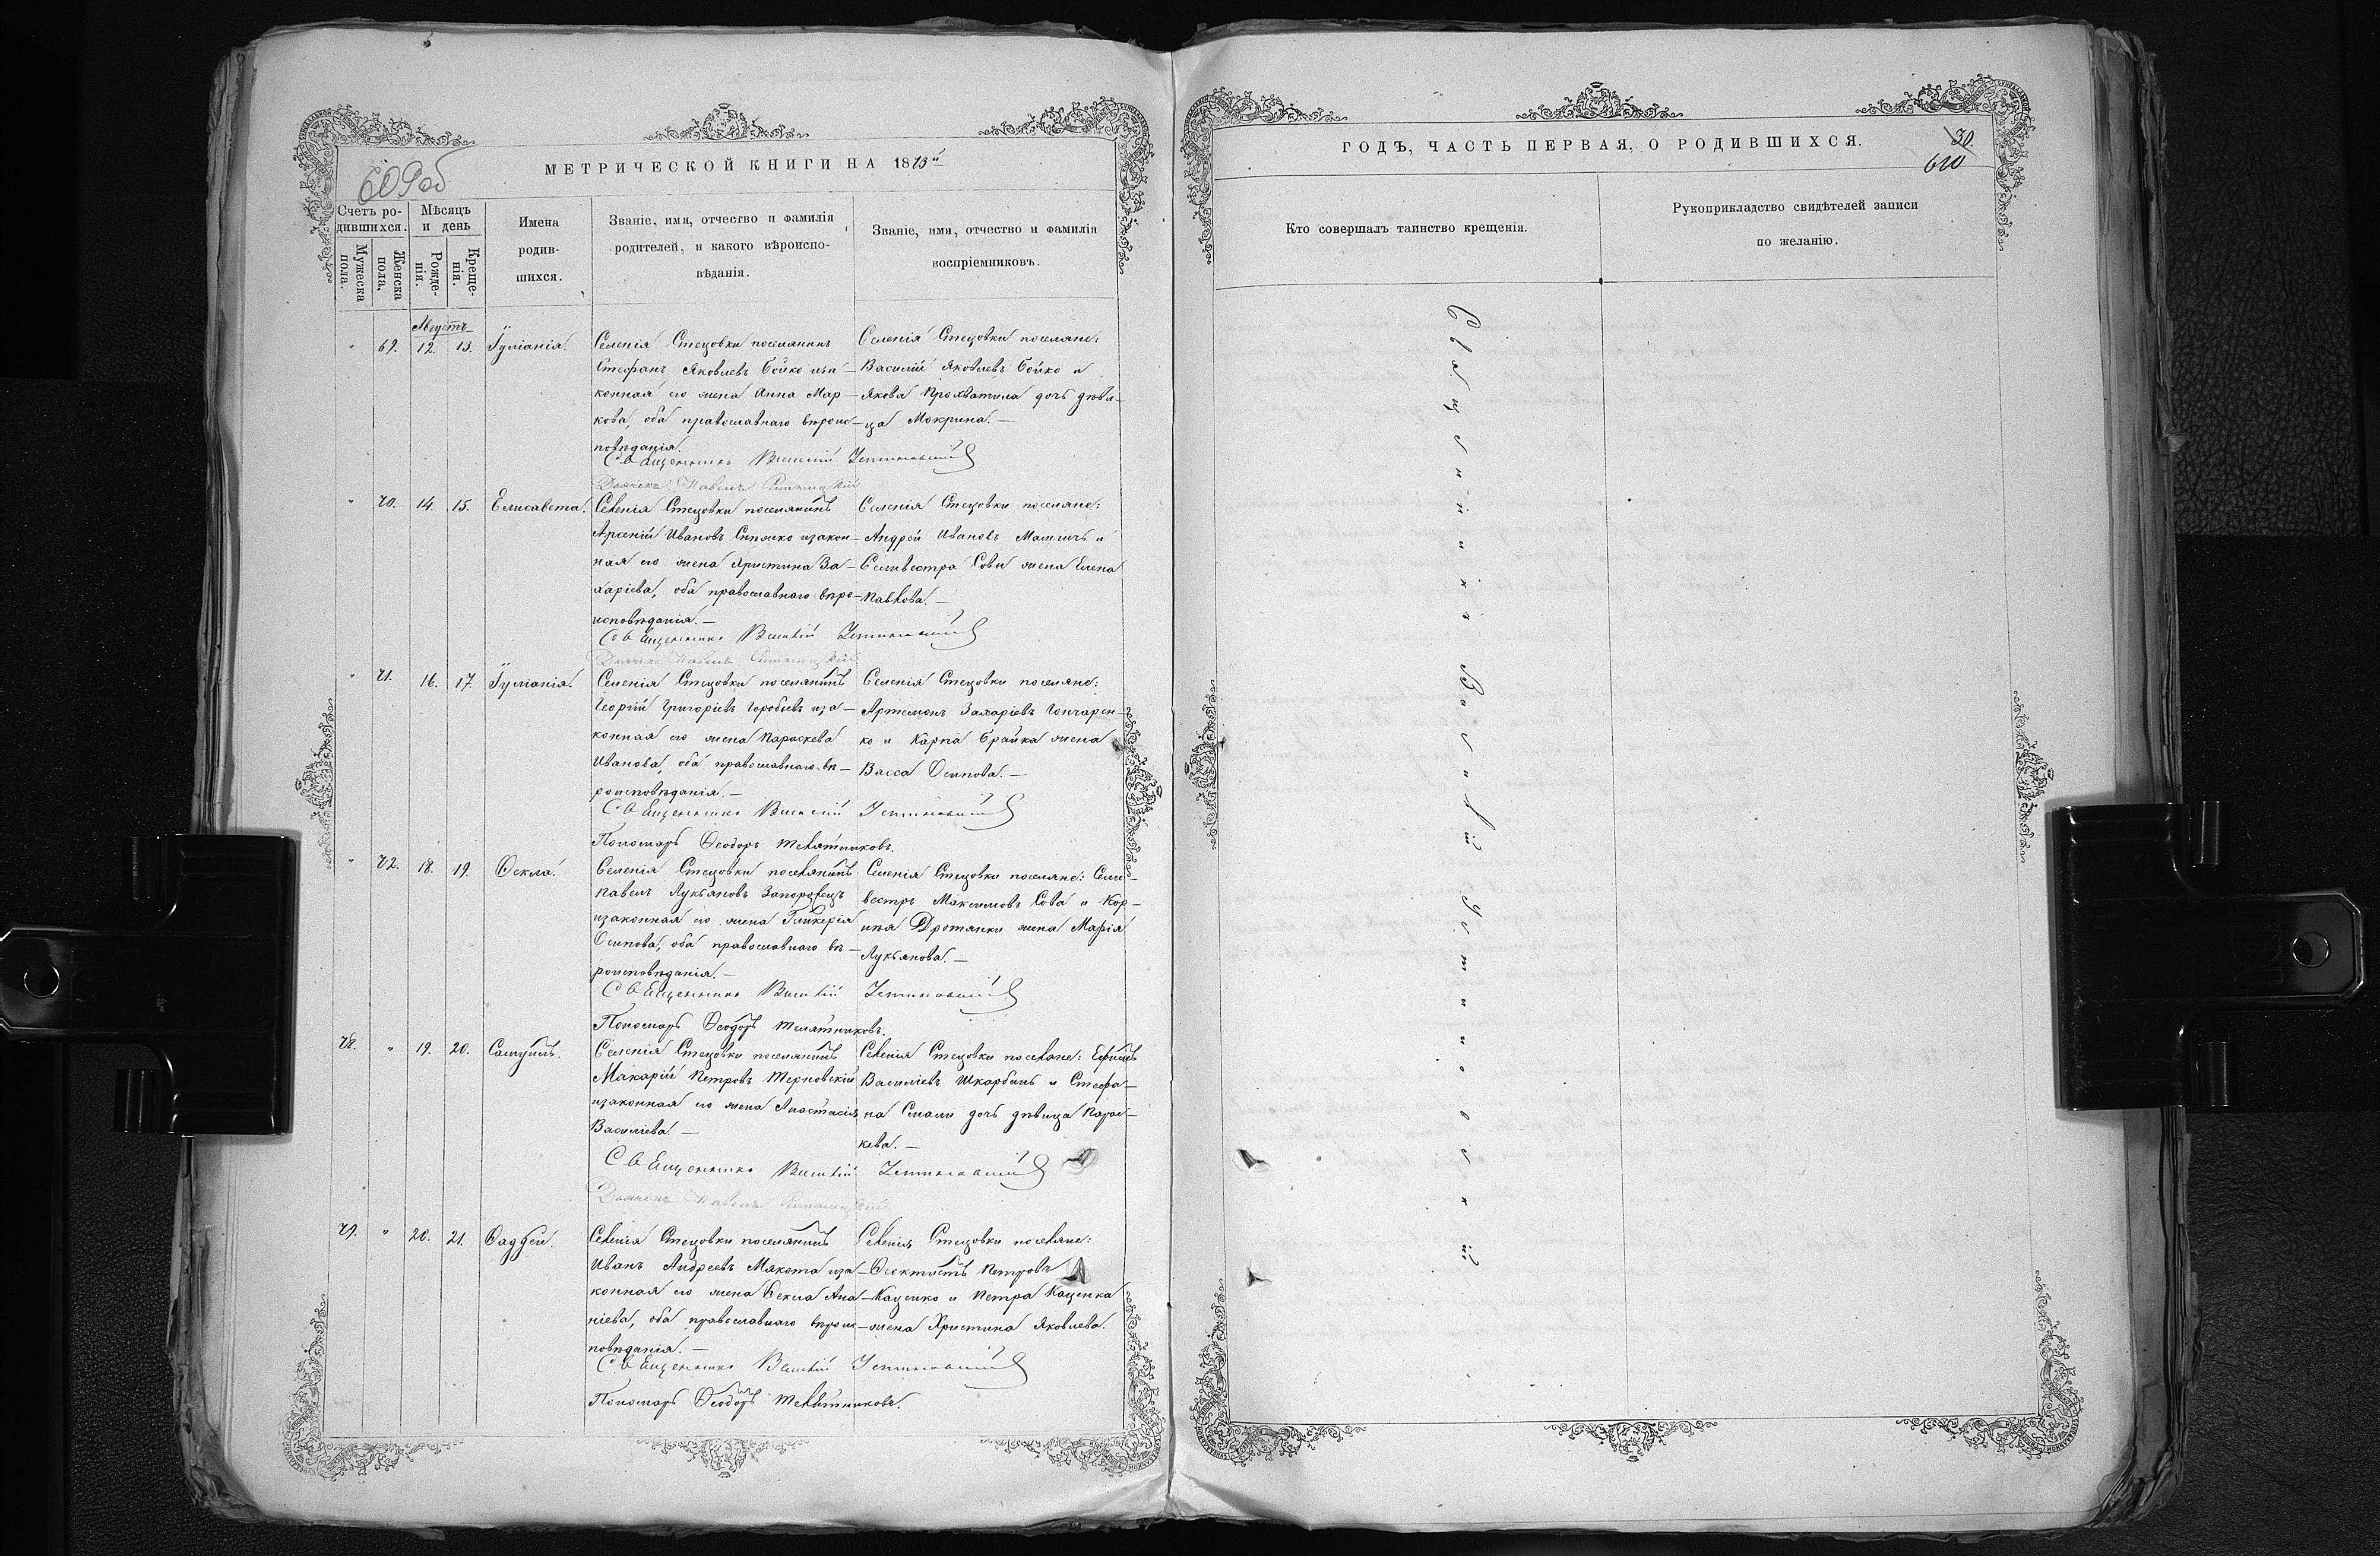 МЕТРИЧЕСКОЙ КНИГИ НА 1873й
609об
Счетъ ро-
дившихся.
Мужеска
пола.
Женска
пола.
Мѣсяцъ
и день
Рожде-
нія.
Креще-
нія.
Имена
родив-
шихся.
Званіе, имя, отчество и фамилія
родителей, и какого вѣроиспо-
вѣданія.
Званіе, имя, отчество и фамилія
воспріемниковъ.
Августъ
" 69. 12. 13. Іуліанія.
Селенія Стецовки поселянинъ
Стефанъ Яковлевъ Бойко иза-
конная его жена Анна Мар-
кова, оба православнаго вѣроис-
повѣданія.
Селенія Стецовки поселяне:
Василій Яковлевъ Бойко и
Якова Прохватила дочь дѣви-
ца Мокрина.
Священникъ Василій Устиновскій
Дьячекъ Павелъ
" 70. 14. 15. Елисавета.
Селенія Стецовки поселянинъ
Арсеній Ивановъ изакон-
ная его жена Христина За-
харіева, оба православнаго вѣро-
исповѣданія.
Селенія Стецовки поселяне:
Андрей Ивановъ и
Селивестра Совы жена Елена
Павлова.
Священникъ Василій Устиновскій
Дьячекъ Павелъ
" 71. 16. 17. Іуліанія.
Селенія Стецовки поселянинъ
Георгій Григоріевъ Горобьевъ иза-
конная его жена Параскева
Иванова, оба православнаго вѣ-
роисповѣданія.
Селенія Стецовки поселяне:
Артемонъ Захаріевъ Гончарен-
ко и Карпа Брайка жена
Васса Осипова.
Священникъ Василій Устиновскій
Пономарь Ѳеодоръ Телятниковъ.
" 72. 18. 19. Ѳекла.
Селенія Стецовки поселянинъ
Павелъ Лукьяновъ Запорожецъ
изаконная его жена Гликерія
Осипова, оба православнаго вѣ-
роисповѣданія.
Селенія Стецовки поселяне: Сели-
вестръ Максимовъ Сова и Кор-
нія Дротянки жена Марія
Лукьянова.
Священникъ Василій Устиновскій
Пономарь Ѳеодоръ Телятниковъ.
78. " 19. 20. Самуилъ.
Селенія Стецовки поселянинъ
Макарій Петровъ Терновскій
изаконная его жена Анастасія
Василіева.
Селенія Стецовки поселяне: Ефимъ
Василіевъ Шкарбанъ и Стефа-
на дочь дѣвица Парас-
кева.
Священникъ Василій Устиновскій
Дьячекъ Павелъ
79. " 20. 21. Ѳаддей.
Селенія Стецовки поселянинъ
Иванъ Андреевъ Макота иза-
конная его жена Ѳекла Ана-
ніева, оба православнаго вѣроис-
повѣданія.
Селенія Стецовки поселяне:
Ѳеоктистъ Петровъ
Каценко и Петра Каценка
жена Христина Яковлева.
Священникъ Василій Устиновскій
Пономарь Ѳеодоръ Телятниковъ.
ГОДЪ, ЧАСТЬ ПЕРВАЯ, О РОДИВШИХСЯ.
30.
610
Кто совершалъ таинство крещенія.
Рукоприкладство свидѣтелей записи
по желанію.
Священникъ Василій Устиновскій